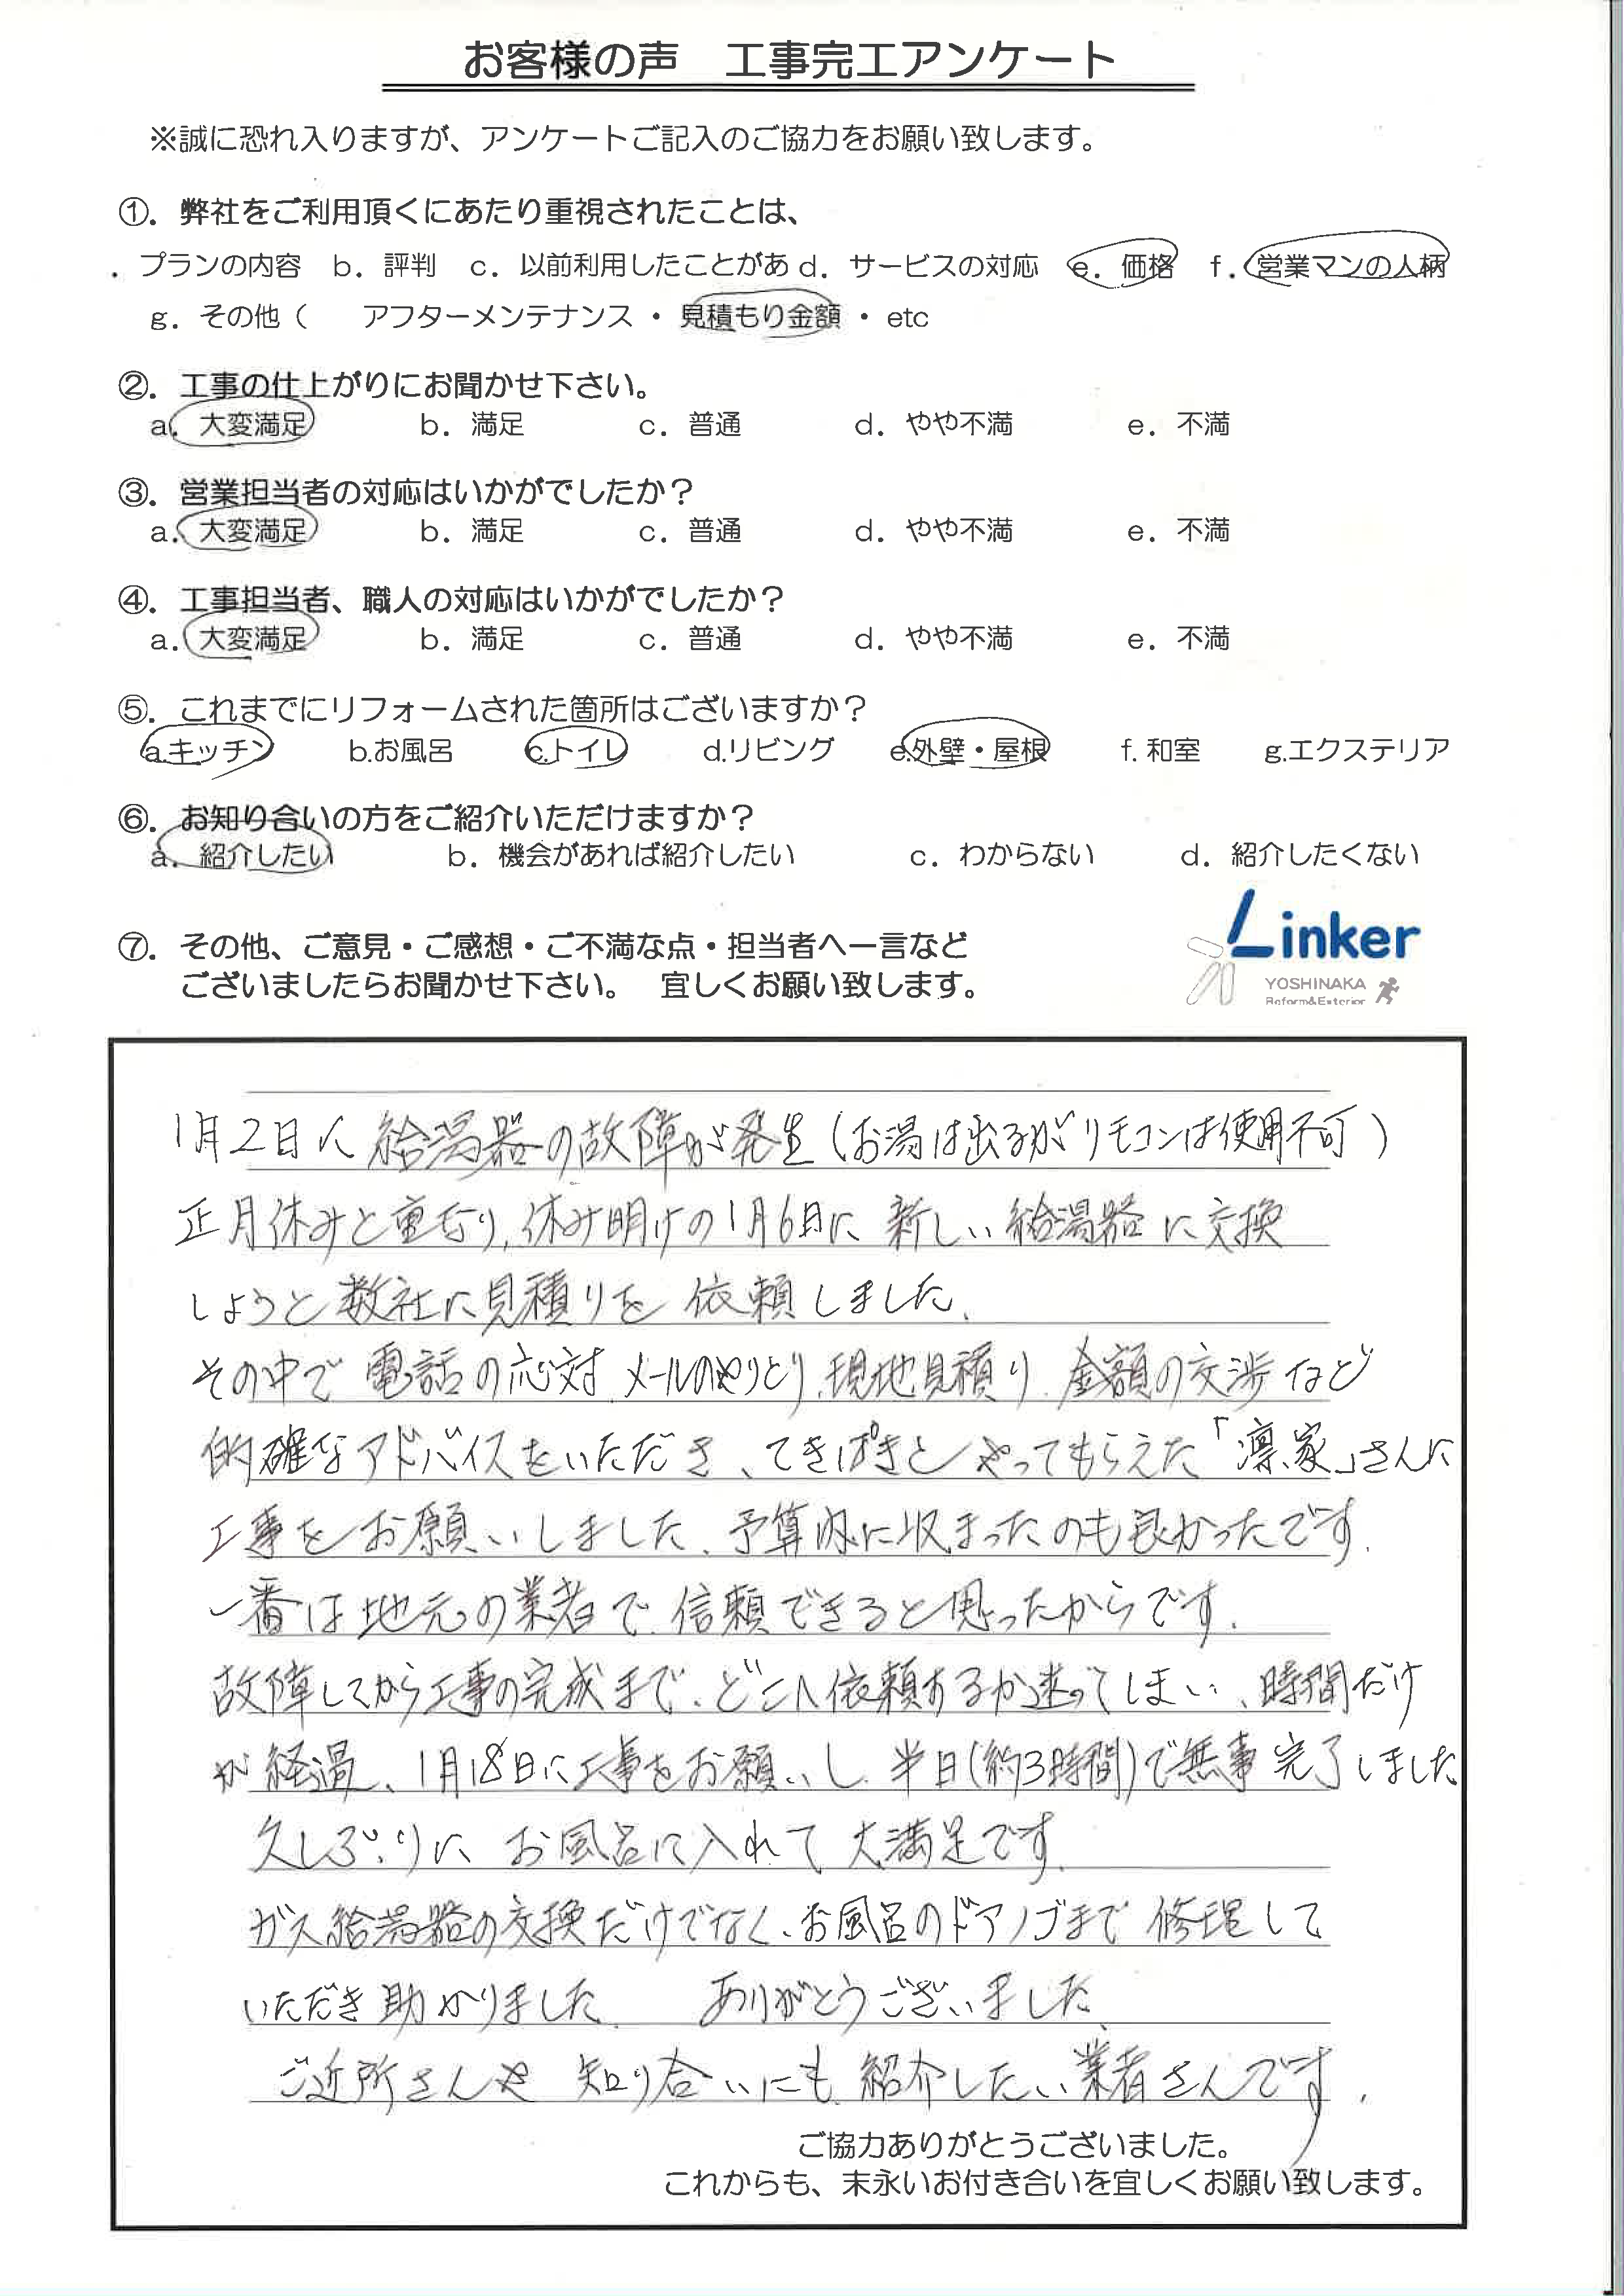 お客様の声　工事完工アンケート
※誠に恐れ入りますが、アンケートご記入のご協力をお願い致します。
①．弊社をご利用頂くにあたり重視されたことは、
．プランの内容　b．評判　c．以前利用したことがあ d．サービスの対応　e．価格　f．営業マンの人柄
g．その他（　アフターメンテナンス・見積もり金額・etc
②．工事の仕上がりにお聞かせ下さい。
a．大変満足　b．満足　c．普通　d．やや不満　e．不満
③．営業担当者の対応はいかがでしたか？
a．大変満足　b．満足　c．普通　d．やや不満　e．不満
④．工事担当者、職人の対応はいかがでしたか？
a．大変満足　b．満足　c．普通　d．やや不満　e．不満
⑤．これまでにリフォームされた箇所はございますか？
a.キッチン　b.お風呂　c.トイレ　d.リビング　e.外壁・屋根　f.和室　g.エクステリア
⑥．お知り合いの方をご紹介いただけますか？
a．紹介したい　b．機会があれば紹介したい　c．わからない　d．紹介したくない
⑦．その他、ご意見・ご感想・ご不満な点・担当者へ一言など
ございましたらお聞かせ下さい。　宜しくお願い致します。
Linker
YOSHINAKA
Reform&Exterior
1月2日に給湯器の故障が発生（お湯は出るがリモコンは使用不可）
正月休みと重なり、休み明けの1月6日に新しい給湯器に交換
しようと数社に見積りを依頼しました、
その中で電話の応対、メールのやりとり、現地見積り、金額の交渉など
的確なアドバイスをいただき、てきぱきとやってもらえた「凛家」さんに
工事をお願いしました、予算内に収まったのも良かったです.
一番は地元の業者で、信頼できると思ったからです.
故障してから工事の完成まで、どこへ依頼するか迷ってしまい、時間だけ
が経過、1月18日に工事をお願いし、半日（約3時間）で無事完了しました
久しぶりにお風呂に入れて大満足です.
ガス給湯器の交換だけでなく、お風呂のドアノブまで修理して
いただき助かりました.　ありがとうございました、
ご近所さんや知り合いにも紹介したい業者さんです.
ご協力ありがとうございました。
これからも、末永いお付き合いを宜しくお願い致します。